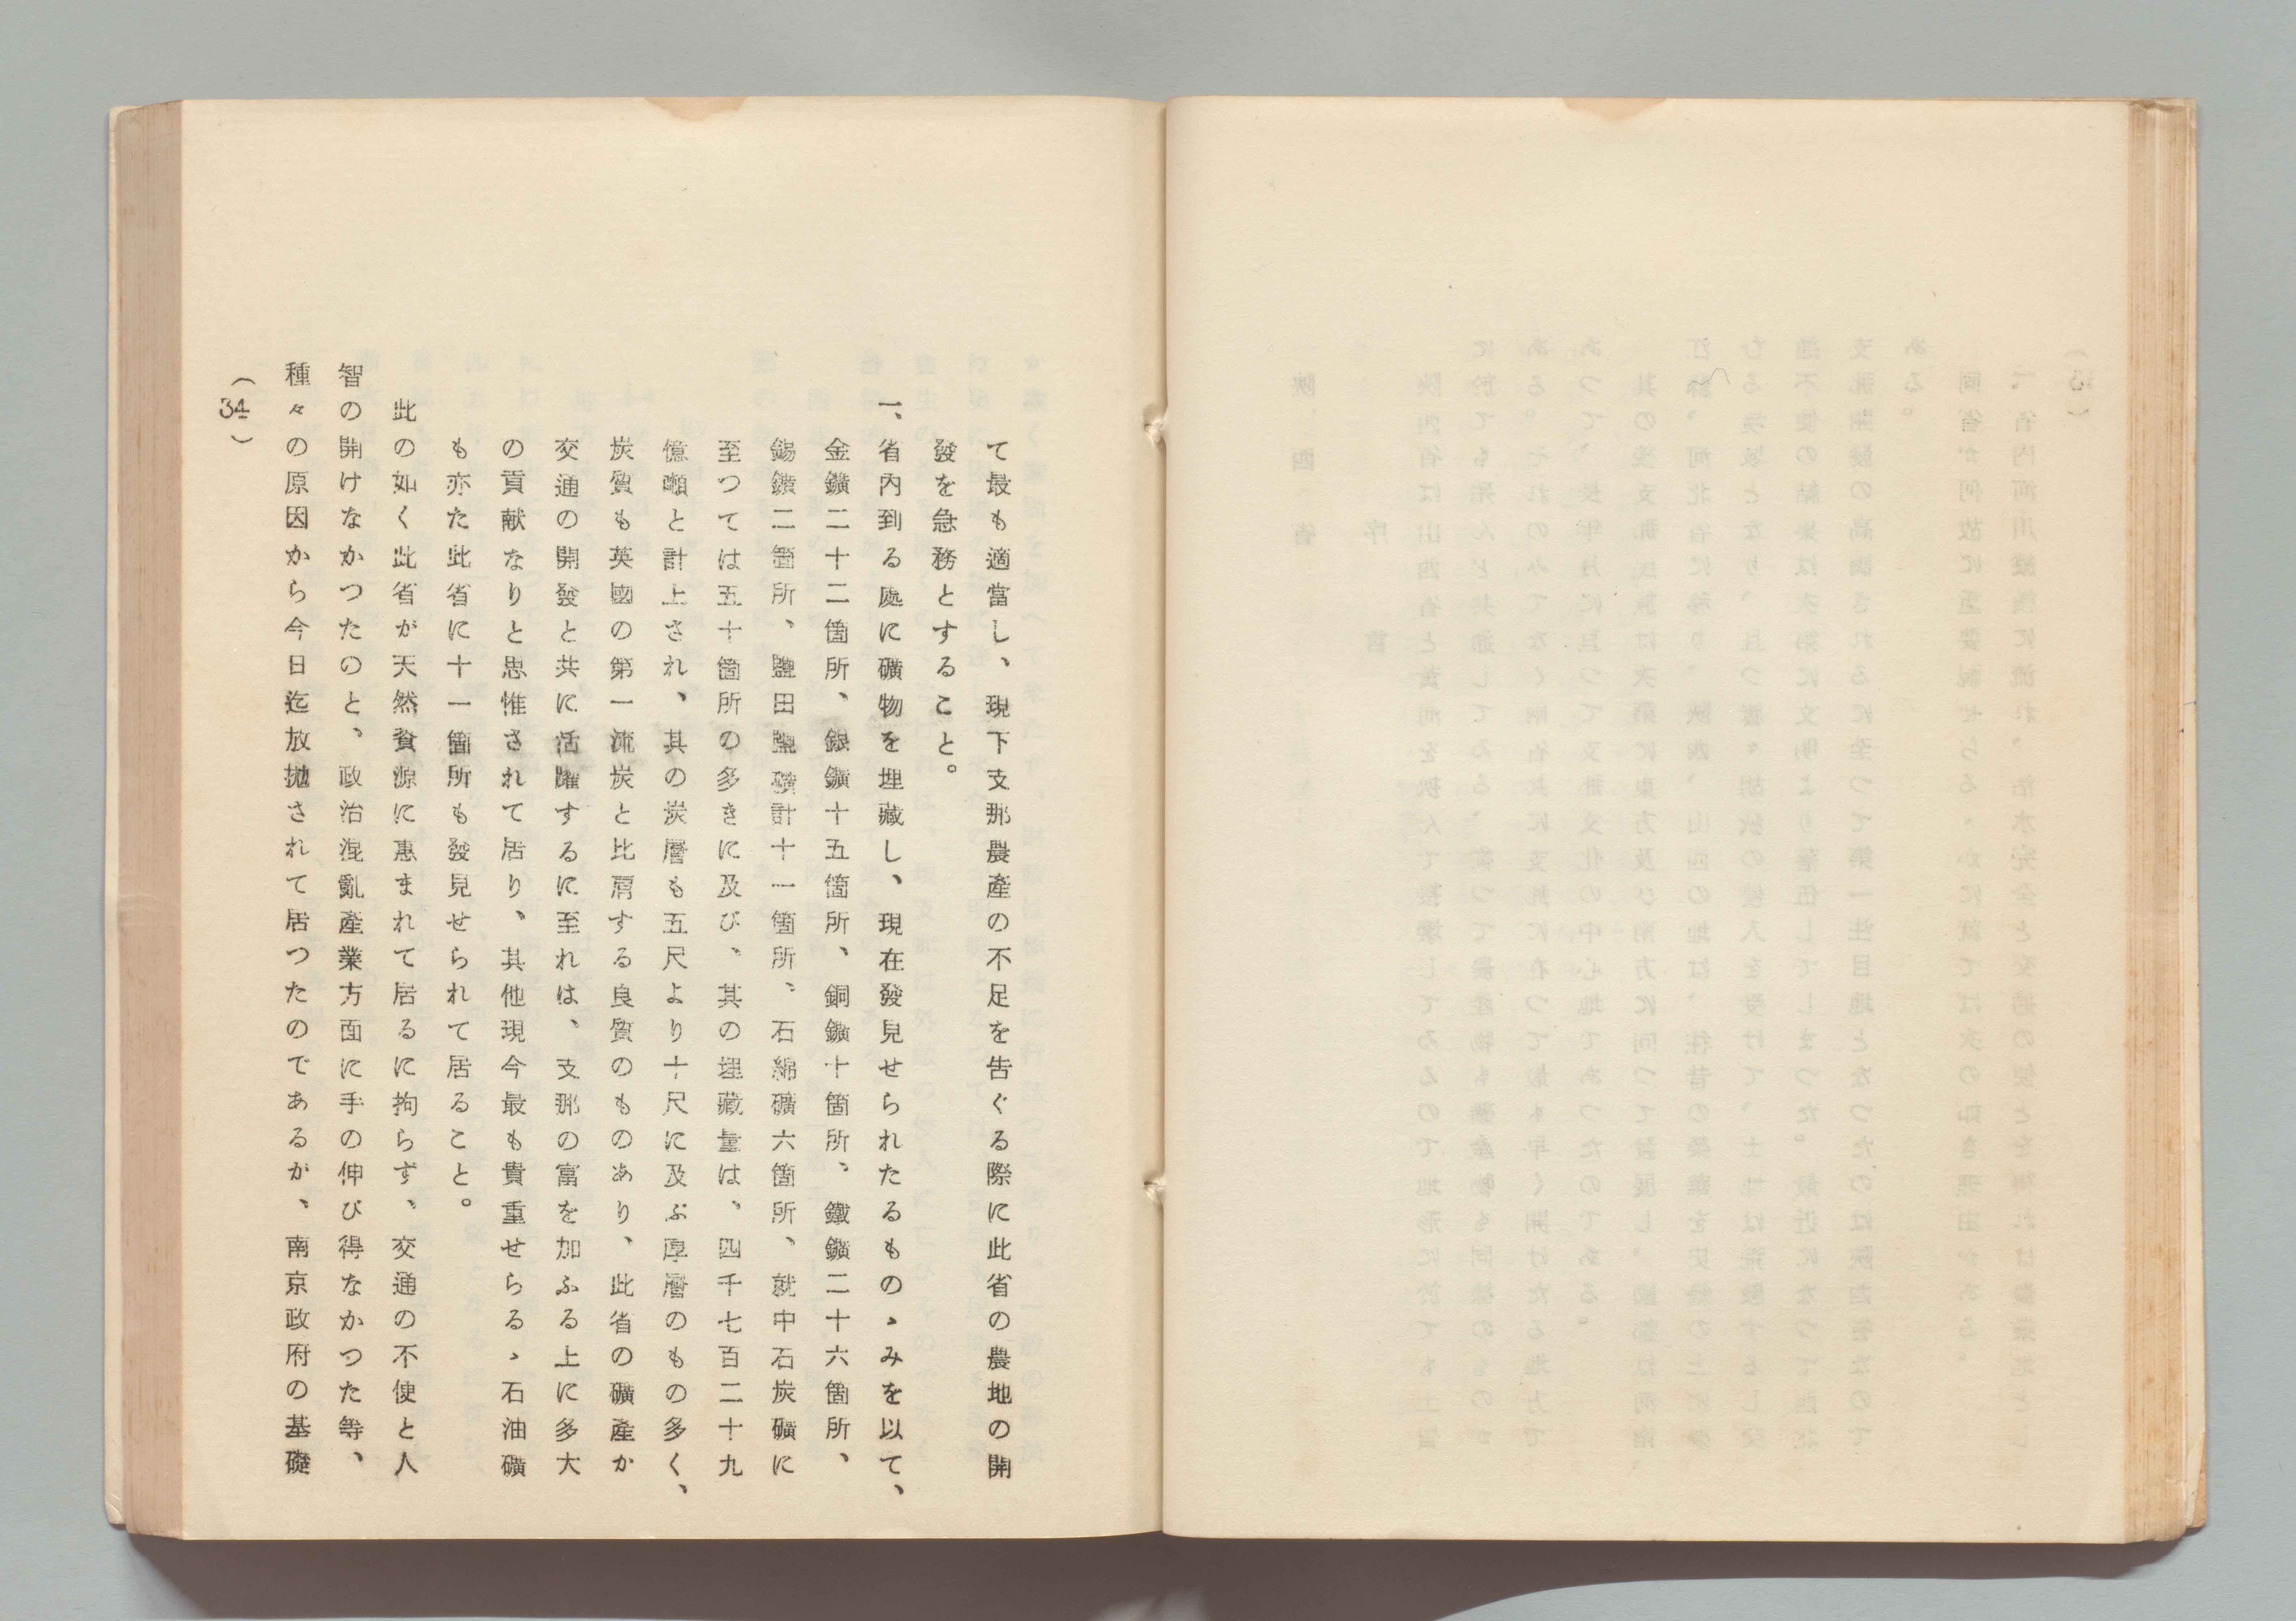 て最も適當し、現下支那農產の不足を告ぐる際に此省の農地の開
發を急務とすること。
一、省内到る處に礦物を埋藏し、現在發見せられたるものゝみを以て、
金鑛二十二箇所、銀鑛十五箇所、銅鑛十箇所、鐵鑛二十六箇所、
錫鑛二箇所、鹽田鹽礦計十一箇所、石綿礦六箇所、就中石炭礦に
至つては五十箇所の多きに及び、其の埋藏量は、四千七百二十九
億噸と計上され、其の炭層も五尺より十尺に及ぶ厚層のもの多く、
炭質も英國の第一流炭と比肩する良質のものあり、此省の礦產か
交通の開發と共に活躍するに至れは、支那の富を加ふる上に多大
の貢献なりと思惟されて居り、其他現今最も貴重せらるゝ石油礦
も亦た此省に十一箇所も發見せられて居ること。
此の如く此省が天然資源に惠まれて居るに拘らず、交通の不便と人
智の開けなかつたのと、政治混亂產業方面に手の伸び得なかつた等、
種々の原因から今日迄放擲されて居つたのであるが、南京政府の基礎
(34)